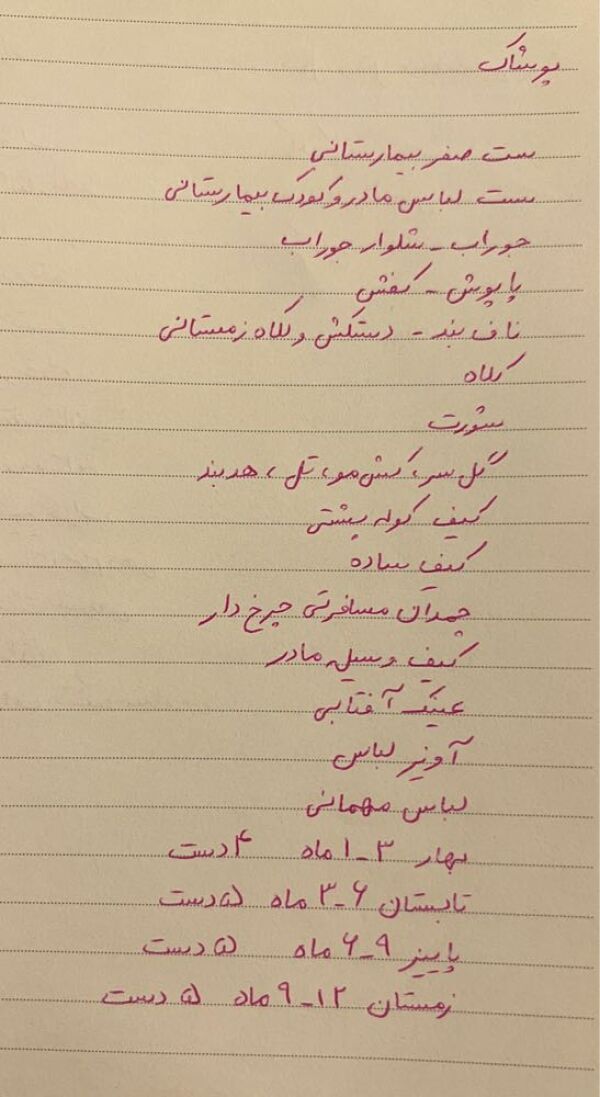 پوشاک
ست صفر بیمارستانی
ست لباس مادر و کودک بیمارستانی
جوراب - شلوار جوراب
پاپوش - کفش
ناف بند - دستکش و کلاه زمستانی
کلاه
شورت
گل سر، کش مو، تل، هدبند
کیف کوله پشتی
کیف ساده
چمدان مسافرتی چرخ دار
کیف وسیله مادر
عینک آفتابی
آویز لباس
لباس مهمانی
بهار ۳-۱ ماه ۴ دست
تابستان ۶-۳ ماه ۵ دست
پاییز ۹-۶ ماه ۵ دست
زمستان ۱۲-۹ ماه ۵ دست